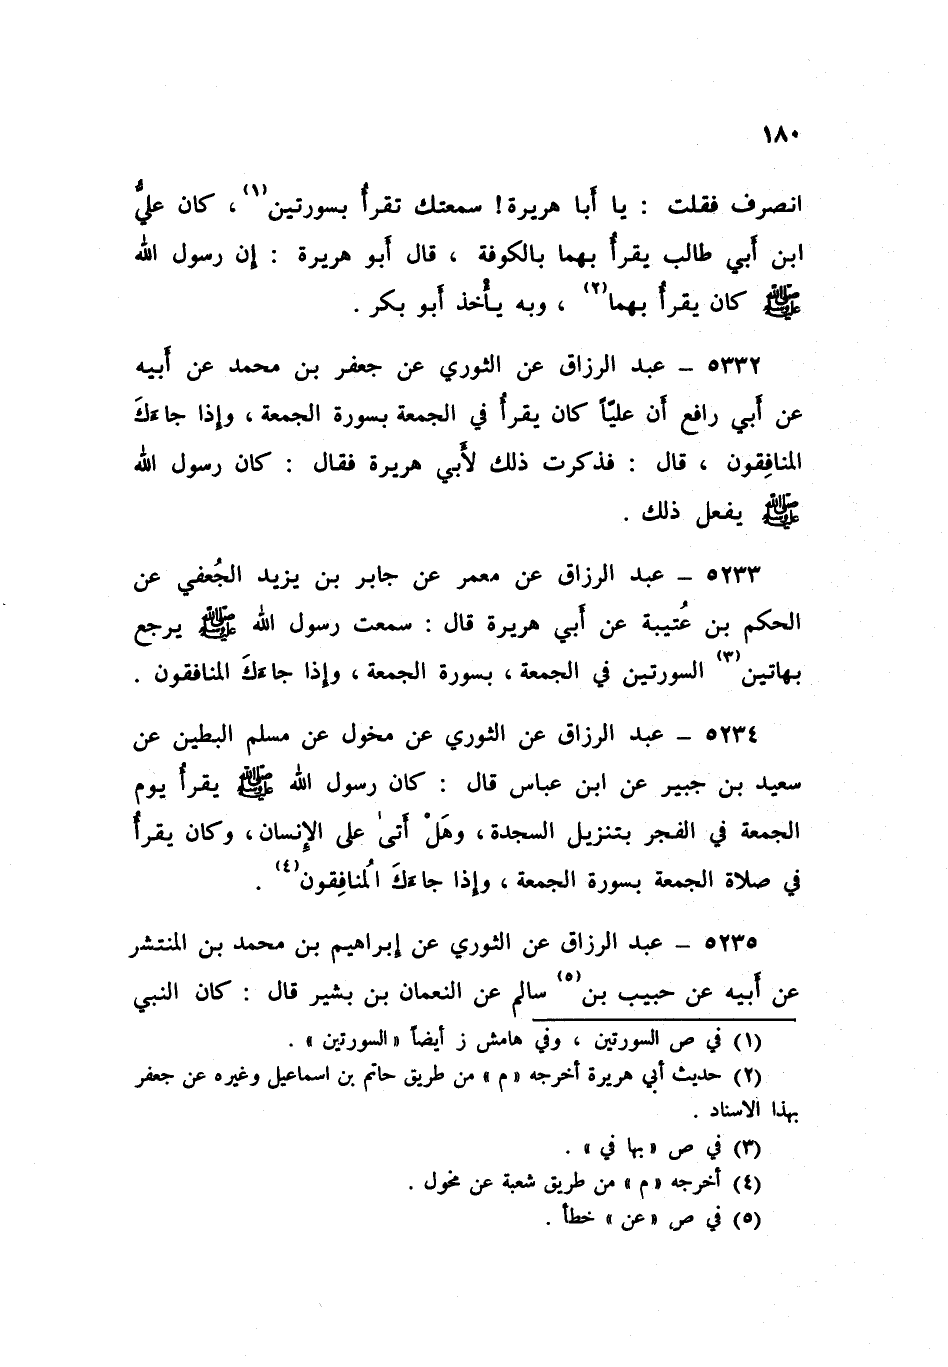 ١٨٠
انصرف فقلت : يا أَبا هريرة! سمعتك تقرأُ بسورتين(١)، كان عليٌّ
ابن أَبي طالب يقرأُ بهما بالكوفة ، قال أَبو هريرة : إن رسول الله
ﷺ كان يقرأُ بهما(٢) ، وبه يأْخذ أَبو بكر .
٥٣٣٢ – عبد الرزاق عن الثوري عن جعفر بن محمد عن أَبيه
عن أَبي رافع أَن عليّاً كان يقرأُ في الجمعة بسورة الجمعة ، وإذا جاءَكَ
المنافِقون ، قال : فذكرت ذلك لأَبي هريرة فقال : كان رسول الله
ﷺ يفعل ذلك .
٥٢٣٣ – عبد الرزاق عن معمر عن جابر بن يزيد الجُعفي عن
الحكم بن عُتيبة عن أَبي هريرة قال : سمعت رسول الله ﷺ يرجع
بهاتين(٣) السورتين في الجمعة ، بسورة الجمعة ، وإذا جاءَكَ المنافقون .
٥٢٣٤ – عبد الرزاق عن الثوري عن مخول عن مسلم البطين عن
سعيد بن جبير عن ابن عباس قال : كان رسول الله ﷺ يقرأُ يوم
الجمعة في الفجر بتنزيل السجدة ، وهَلْ أتىٰ على الإِنسان ، وكان يقرأُ
في صلاة الجمعة بسورة الجمعة ، وإذا جاءَكَ المُنافِقون(٤) .
٥٢٣٥ – عبد الرزاق عن الثوري عن إبراهيم بن محمد بن المنتشر
عن أَبيه عن حبيب بن(٥) سالم عن النعمان بن بشير قال : كان النبي
(١) في ص السورتين ، وفي هامش ز أيضاً «السورتين» .
(٢) حديث أبي هريرة أخرجه «م» من طريق حاتم بن اسماعيل وغيره عن جعفر
بهذا الاسناد .
(٣) في ص «بها في» .
(٤) أخرجه «م» من طريق شعبة عن مخول .
(٥) في ص «عن» خطأ .